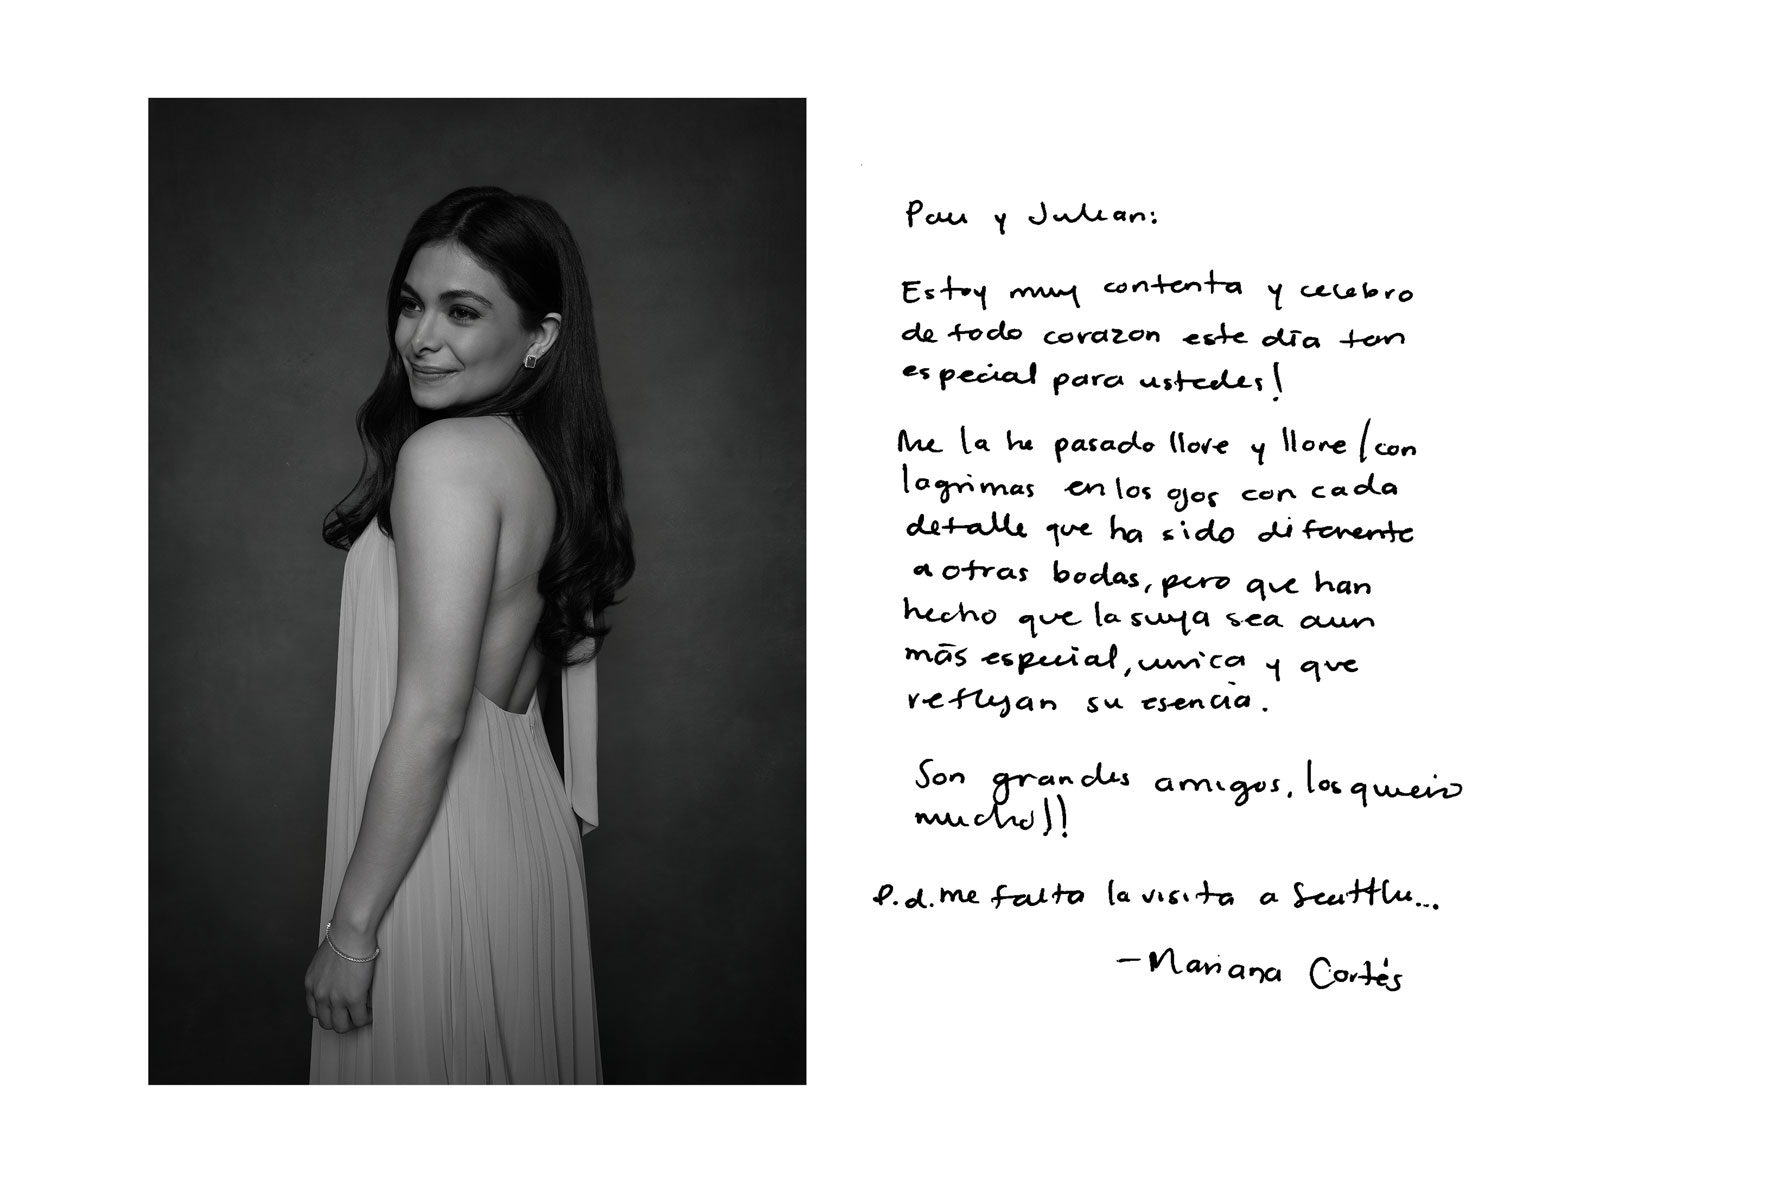 Pau y Julian:
Estoy muy contenta y celebro
de todo corazon este día tan
especial para ustedes!
Me la he pasado llore y llore (con
lagrimas en los ojos con cada
detalle que ha sido diferente
a otras bodas, pero que han
hecho que la suya sea aun
más especial, unica y que
reflejan su esencia.
Son grandes amigos, los quiero
mucho)!
P.d. me falta la visita a Seattle...
—Mariana Cortés